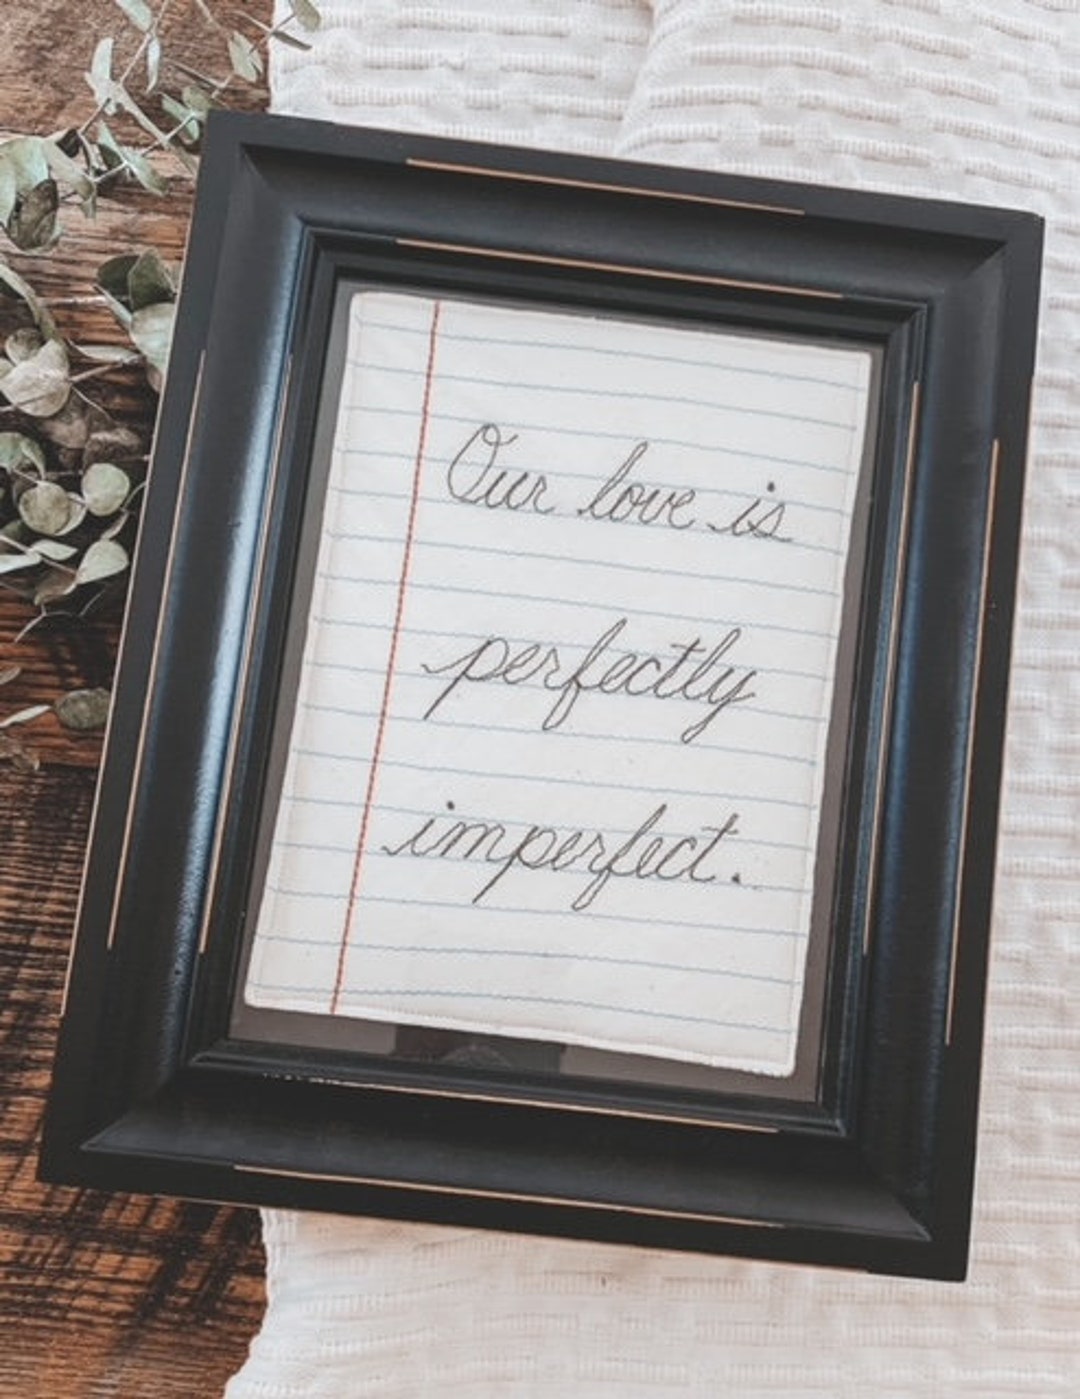 Our love is
perfectly
imperfect.